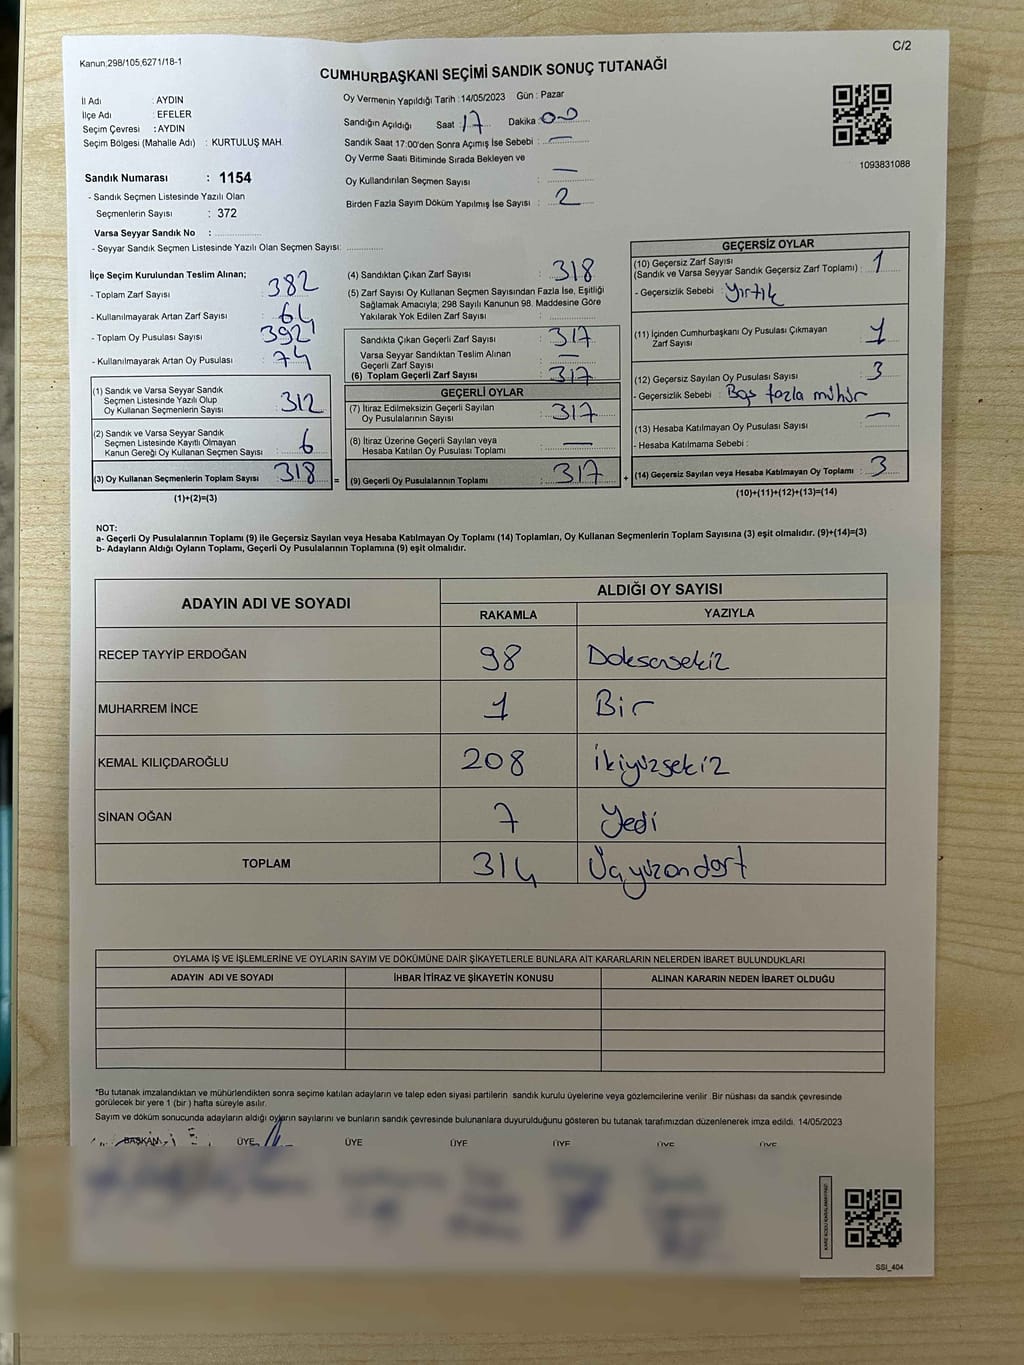 C/2
Kanun;298/105,6271/18-1
CUMHURBAŞKANI SEÇİMİ SANDIK SONUÇ TUTANAĞI
İl Adı : AYDIN
İlçe Adı : EFELER
Seçim Çevresi : AYDIN
Seçim Bölgesi (Mahalle Adı) : KURTULUŞ MAH.
Sandık Numarası : 1154
- Sandık Seçmen Listesinde Yazılı Olan
Seçmenlerin Sayısı : 372
Varsa Seyyar Sandık No :
- Seyyar Sandık Seçmen Listesinde Yazılı Olan Seçmen Sayısı:
Oy Vermenin Yapıldığı Tarih :14/05/2023 Gün : Pazar
Sandığın Açıldığı Saat : 17 Dakika : 00
Sandık Saat 17:00'den Sonra Açımış İse Sebebi : —
Oy Verme Saati Bitiminde Sırada Bekleyen ve
Oy Kullandırılan Seçmen Sayısı : —
Birden Fazla Sayım Döküm Yapılmış İse Sayısı : 2
1093831088
İlçe Seçim Kurulundan Teslim Alınan;
- Toplam Zarf Sayısı : 382
- Kullanılmayarak Artan Zarf Sayısı : 64
- Toplam Oy Pusulası Sayısı : 392
- Kullanılmayarak Artan Oy Pusulası : 74
(1) Sandık ve Varsa Seyyar Sandık
Seçmen Listesinde Yazılı Olup
Oy Kullanan Seçmenlerin Sayısı : 312
(2) Sandık ve Varsa Seyyar Sandık
Seçmen Listesinde Kayıtlı Olmayan
Kanun Gereği Oy Kullanan Seçmen Sayısı : 6
(3) Oy Kullanan Seçmenlerin Toplam Sayısı : 318 =
(1)+(2)=(3)
(4) Sandıktan Çıkan Zarf Sayısı : 318
(5) Zarf Sayısı Oy Kullanan Seçmen Sayısından Fazla İse, Eşitliği
Sağlamak Amacıyla; 298 Sayılı Kanunun 98. Maddesine Göre
Yakılarak Yok Edilen Zarf Sayısı :
Sandıkta Çıkan Geçerli Zarf Sayısı : 317
Varsa Seyyar Sandıktan Teslim Alınan
Geçerli Zarf Sayısı : —
(6) Toplam Geçerli Zarf Sayısı : 317
GEÇERLİ OYLAR
(7) İtiraz Edilmeksizin Geçerli Sayılan
Oy Pusulalarının Sayısı : 317
(8) İtiraz Üzerine Geçerli Sayılan veya
Hesaba Katılan Oy Pusulası Toplamı : —
(9) Geçerli Oy Pusulalarının Toplamı : 317 +
GEÇERSİZ OYLAR
(10) Geçersiz Zarf Sayısı
(Sandık ve Varsa Seyyar Sandık Geçersiz Zarf Toplamı) : 1
- Geçersizlik Sebebi : Yırtık
(11) İçinden Cumhurbaşkanı Oy Pusulası Çıkmayan
Zarf Sayısı : 1
(12) Geçersiz Sayılan Oy Pusulası Sayısı : 3
- Geçersizlik Sebebi : Boş fazla mühür
(13) Hesaba Katılmayan Oy Pusulası Sayısı : —
- Hesaba Katılmama Sebebi :
(14) Geçersiz Sayılan veya Hesaba Katılmayan Oy Toplamı : 3
(10)+(11)+(12)+(13)=(14)
NOT:
a- Geçerli Oy Pusulalarının Toplamı (9) ile Geçersiz Sayılan veya Hesaba Katılmayan Oy Toplamı (14) Toplamları, Oy Kullanan Seçmenlerin Toplam Sayısına (3) eşit olmalıdır. (9)+(14)=(3)
b- Adayların Aldığı Oyların Toplamı, Geçerli Oy Pusulalarının Toplamına (9) eşit olmalıdır.
ADAYIN ADI VE SOYADI ALDIĞI OY SAYISI
RAKAMLA YAZIYLA
RECEP TAYYİP ERDOĞAN 98 Doksansekiz
MUHARREM İNCE 1 Bir
KEMAL KILIÇDAROĞLU 208 İkiyüzsekiz
SİNAN OĞAN 7 Yedi
TOPLAM 314 Üçyüzondört
OYLAMA İŞ VE İŞLEMLERİNE VE OYLARIN SAYIM VE DÖKÜMÜNE DAİR ŞİKAYETLERLE BUNLARA AİT KARARLARIN NELERDEN İBARET BULUNDUKLARI
ADAYIN ADI VE SOYADI İHBAR İTİRAZ VE ŞİKAYETİN KONUSU ALINAN KARARIN NEDEN İBARET OLDUĞU
*Bu tutanak imzalandıktan ve mühürlendikten sonra seçime katılan adayların ve talep eden siyasi partilerin sandık kurulu üyelerine veya gözlemcilerine verilir. Bir nüshası da sandık çevresinde
görülecek bir yere 1 (bir ) hafta süreyle asılır.
Sayım ve döküm sonucunda adayların aldığı oyların sayılarını ve bunların sandık çevresinde bulunanlara duyurulduğunu gösteren bu tutanak tarafımızdan düzenlenerek imza edildi. 14/05/2023
BAŞKAN ÜYE ÜYE ÜYE ÜYE ÜYE ÜYE
SSI_404